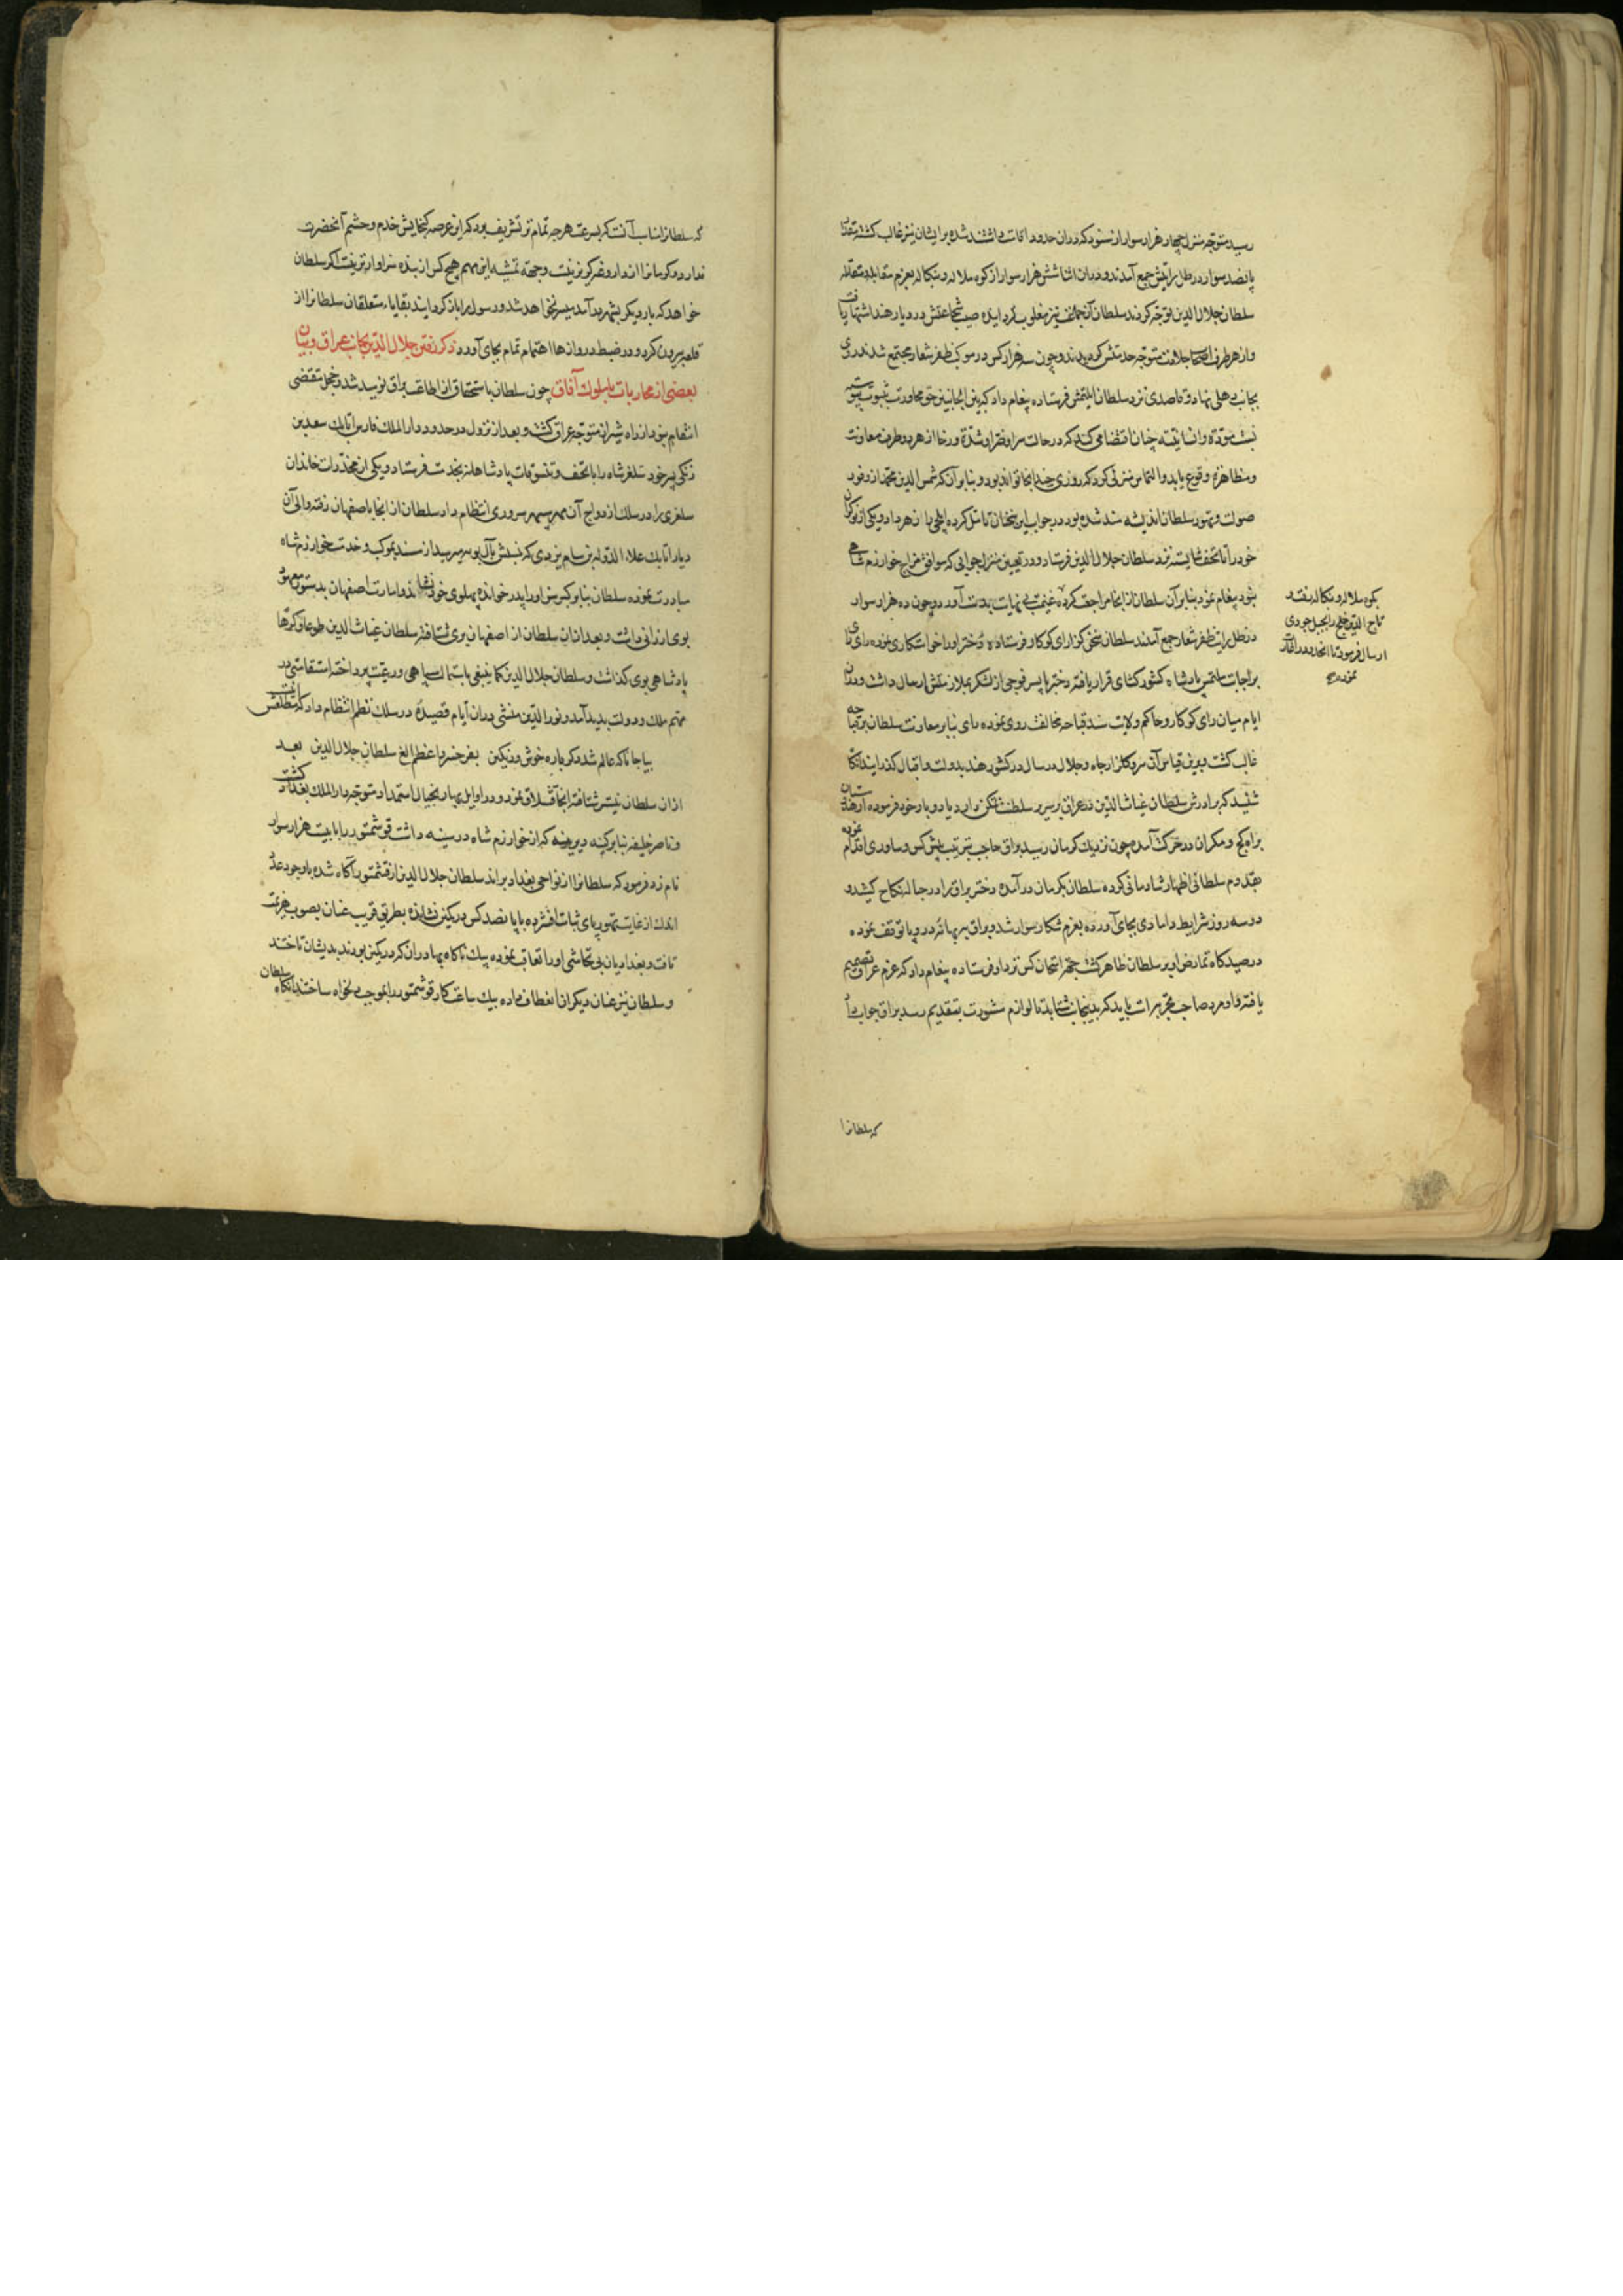 رسید متوجه منزل چهار هزار سوار از سنود که دران حدود اقامت داشتند شده برایشان نیز غالب کشته
پانصد سوار در ظل رایتش جمع آمدند و دران اثنا شش هزار سوار از کوه ملاله و بنکاله بعزم مقابله
سلطان جلال الدین توجه کردند سلطان آنجماعت نیز مغلوب کردانیده صیت شجاعتش در دیار هند اشتهار یافت
و از هر طرف متوجه خدمتش کردیدند و چون سه هزار کس در موکب ظفر شعار مجتمع شدند روی
بجانب دهلی نهاد و قاصدی نزد سلطان ایلتمش فرستاده پیغام داد که بین الجانبین حق مجاورت بثبوت پیوسته
نسبت مودة و انسانیت چنان اقتضا می کند که در حالت سرا و ضرا و شدة و رخا از هر دو طرف معاونت
و مظاهرة وقوع یابد و التماس منزلی کرد که روزی چند انجا تواند بود و بنا بر آن که شمس الدین محمد از وفور
صولت و تهور سلطان اندیشه مند شده بود در جواب این سخنان تامل کرده ایلچی را زهر داد و یکی از نوکران
خود را با تحف شایسته نزد سلطان جلال الدین فرستاد و در تعیین منزل جوابی که موافق مزاج خوارزم شاهی
بود پیغام نمود بنابر آن سلطان از انجا مراجعت کرده غنیمت بی نهایت بدست آورد و چون ده هزار سوار
در ظل رایت ظفر شعار جمع آمدند سلطان شخصی نزد رای کوکار فرستاده دختر او را خواستکاری نموده رای
براجابت ملتمس پادشاه کشور کشای قرار یافته دختر با پسر و فوجی از لشکر بملازمتش ارسال داشت و دران
ایام میان رای کوکار و حاکم ولایت سند قباحه مخالفت روی نموده رای بنابر معاونت سلطان بر قباجه
غالب کشت و برین قیاس آن سرو کلزار جاه و جلال دو سال در کشور هند بدولت و اقبال کذرانید آنکاه
شنید که برادرش سلطان غیاث الدین در عراق بر سریر سلطنت تمکن دارد یاد دیار خود فرموده از هندستان
براه کیج و مکران در حرکت آمده چون نزدیک کرمان رسید براق حاجب بترتیب پیش کس و ساوری اقدام نموده
بقدوم سلطانی اظهار شادمانی کرده سلطان بکرمان درآمده دختر براق را در حباله نکاح کشید و
در سه روز شرایط دامادی بجای آورده بعزم شکار سوار شد و براق ببهانه درد پا توقف نموده
در صیدکاه تمارض او بر سلطان ظاهر کشت بجهة امتحان کس نزد او فرستاده پیغام داد که عزم عراق تصمیم
یافته و او مرد صاحب تجربه است باید که بدینجانب شتابد تا لوازم مشورت بتقدیم رسد براق جواب داد
بکوه ملاله و بنکاله رفته
تاج الدین خلج را بجبل جودی
ارسال فرمود تا انحدود را غارت
نموده
که سلطانرا
که سلطانرا مناسب آنست که بسرعت هرچه تمامتر تشریف برد که این عرصه کنجایش خدم و حشم آنحضرت
ندارد و کرمانرا از داروغه کریز نیست و جهة تمشیه این مهم هیچ کس از بنده سزاوارتر نیست اکر سلطان
خواهد که بار دیکر بشهر درآمد میسر نخواهد شد و رسول را باز کردانید بقایاء متعلقان سلطانرا از
قلعه بیرون کرد و در ضبط دروازها اهتمام تمام بجای آورد ذکر رفتن جلال الدین بجانب عراق و بیان
بعضی از محاربات با ملوک آفاق چون سلطان باستحقاق از اطاعت براق نومید شد و محل مقتضی
انتقام نبود از راه شیراز متوجه عراق کشت و بعد از نزول در حدود دار الملک فارس اتابک سعد بن
زنکی پسر خود سلغر شاه را با تحف و تنسوقات پادشاهانه بخدمت فرستاد و یکی از مخدرات خاندان
سلغری را در سلک ازدواج آن مهر سپهر سروری انتظام داد سلطان از انجا باصفهان رفته والی آن
دیار اتابک علاء الدوله بن سام یزدی که نسبش بآل بویه میرسید از یزد بموکب و خدمت خوارزم شاه
مبادرت نموده سلطان بنابر کبر سن او را پدر خوانده پهلوی خود نشاند و امارت اصفهان بدستور معهود
بوی ارزانی داشت و بعد ازان سلطان از اصفهان بری شتافته سلطان غیاث الدین طوعا و کرها
پادشاهی بوی کذاشت و سلطان جلال الدین کما ینبغی باستمالت سپاهی و رعیت پرداخته استقامتی در
مهم ملک و دولت پدید آمد و نور الدین منشی دران آیام قصیدۀ در سلک نظم انتظام داد که مطلعش اینست
بیا جانا که عالم شد دکر باره خوش و رنکین بفر خسرو اعظم الغ سلطان جلال الدین بعد
ازان سلطان بتستر شتافته انجا قشلاق نمود و در اوایل بهار بخیال استمداد متوجه دار الملک بغداد کشت
و ناصر خلیفه بنابر کینه دیرینه که از خوارزم شاه در سینه داشت قوشتمور را با بیست هزار سوار
نام زد فرمود که سلطانرا از نواحی بغداد براند سلطان جلال الدین از قشتمور آکاه شده باوجود عدد
اندک از غایت تهور پای ثبات افشرده با پانصد کس در کمین نشانده بطریق فریب عنان بصوب هزیمت
تافت و بغدادیان بی تحاشی او را تعاقب نموده بیک ناکاه بهادران که در کمین بودند بدیشان تاختند
و سلطان نیز عنان دیکران انعطاف داده بیک ساعت کار قوشتمور را بموجب دلخواه ساخت آنکاه سلطان